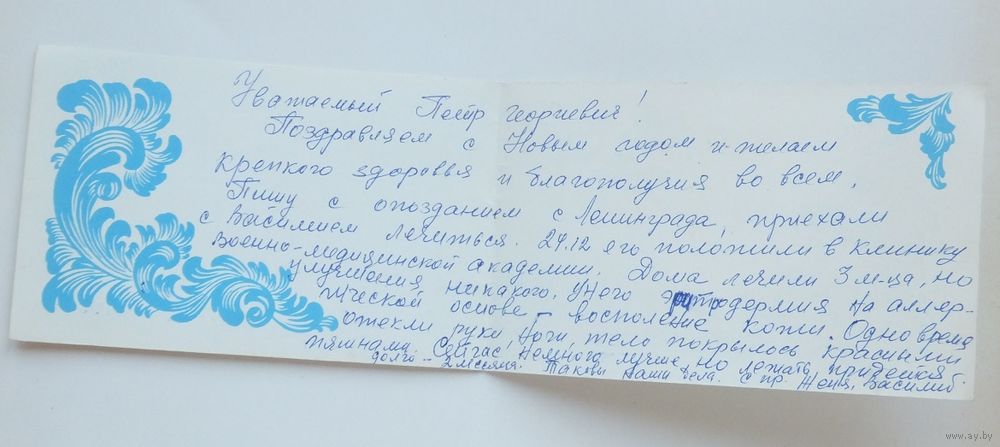 Уважаемый Петр Георгиевич!
Поздравляем с Новым годом и желаем
крепкого здоровья и благополучия во всем.
Пишу с опозданием с Ленинграда, приехали
с Василием лечиться. 27.12 его положили в клинику
Военно-медицинской академии. Дома лечили 3 м-ца, но
улучшения никакого. У него эритродермия на аллер-
гической основе - восполение кожи. Одно время
отекли руки, ноги, тело покрылось красными
пятнами. Сейчас немного лучше, но лежать придется
долго - 2 месяца. Такови наши дела. С пр. Женя, Василий.
www.ay.by